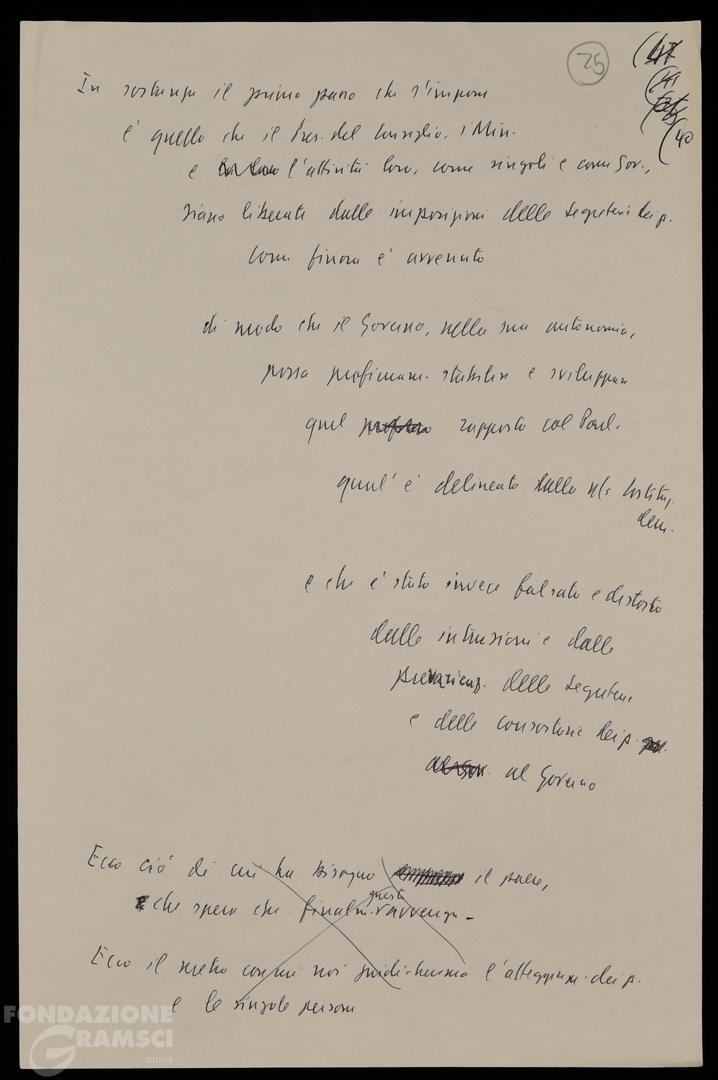 25
(47
(41
(40
In sostanza il primo passo che s'impone
è quello che il Pres. del Consiglio, i Min.
e l'attività loro, come singoli e come Gov.,
siano liberati dalle imposizioni delle segreterie dei p.
come finora è avvenuto
di modo che il Governo, nella sua autonomia,
possa proficuam. stabilire e sviluppare
quel rapporto col Parl.
qual'è delineato dalla ns Costituz.
dem.
e che è stato invece falsato e distorto
dalle intrusioni e dalle
prevaricaz. delle segreterie
e delle consorterie dei p.
al Governo
Ecco ciò di cui ha bisogno il paese,
e che spera che finalm. questo avvenga -
Ecco il metro con cui noi giudicheremo l'atteggiam. dei p.
e le singole persone
FONDAZIONE
GRAMSCI
onlus